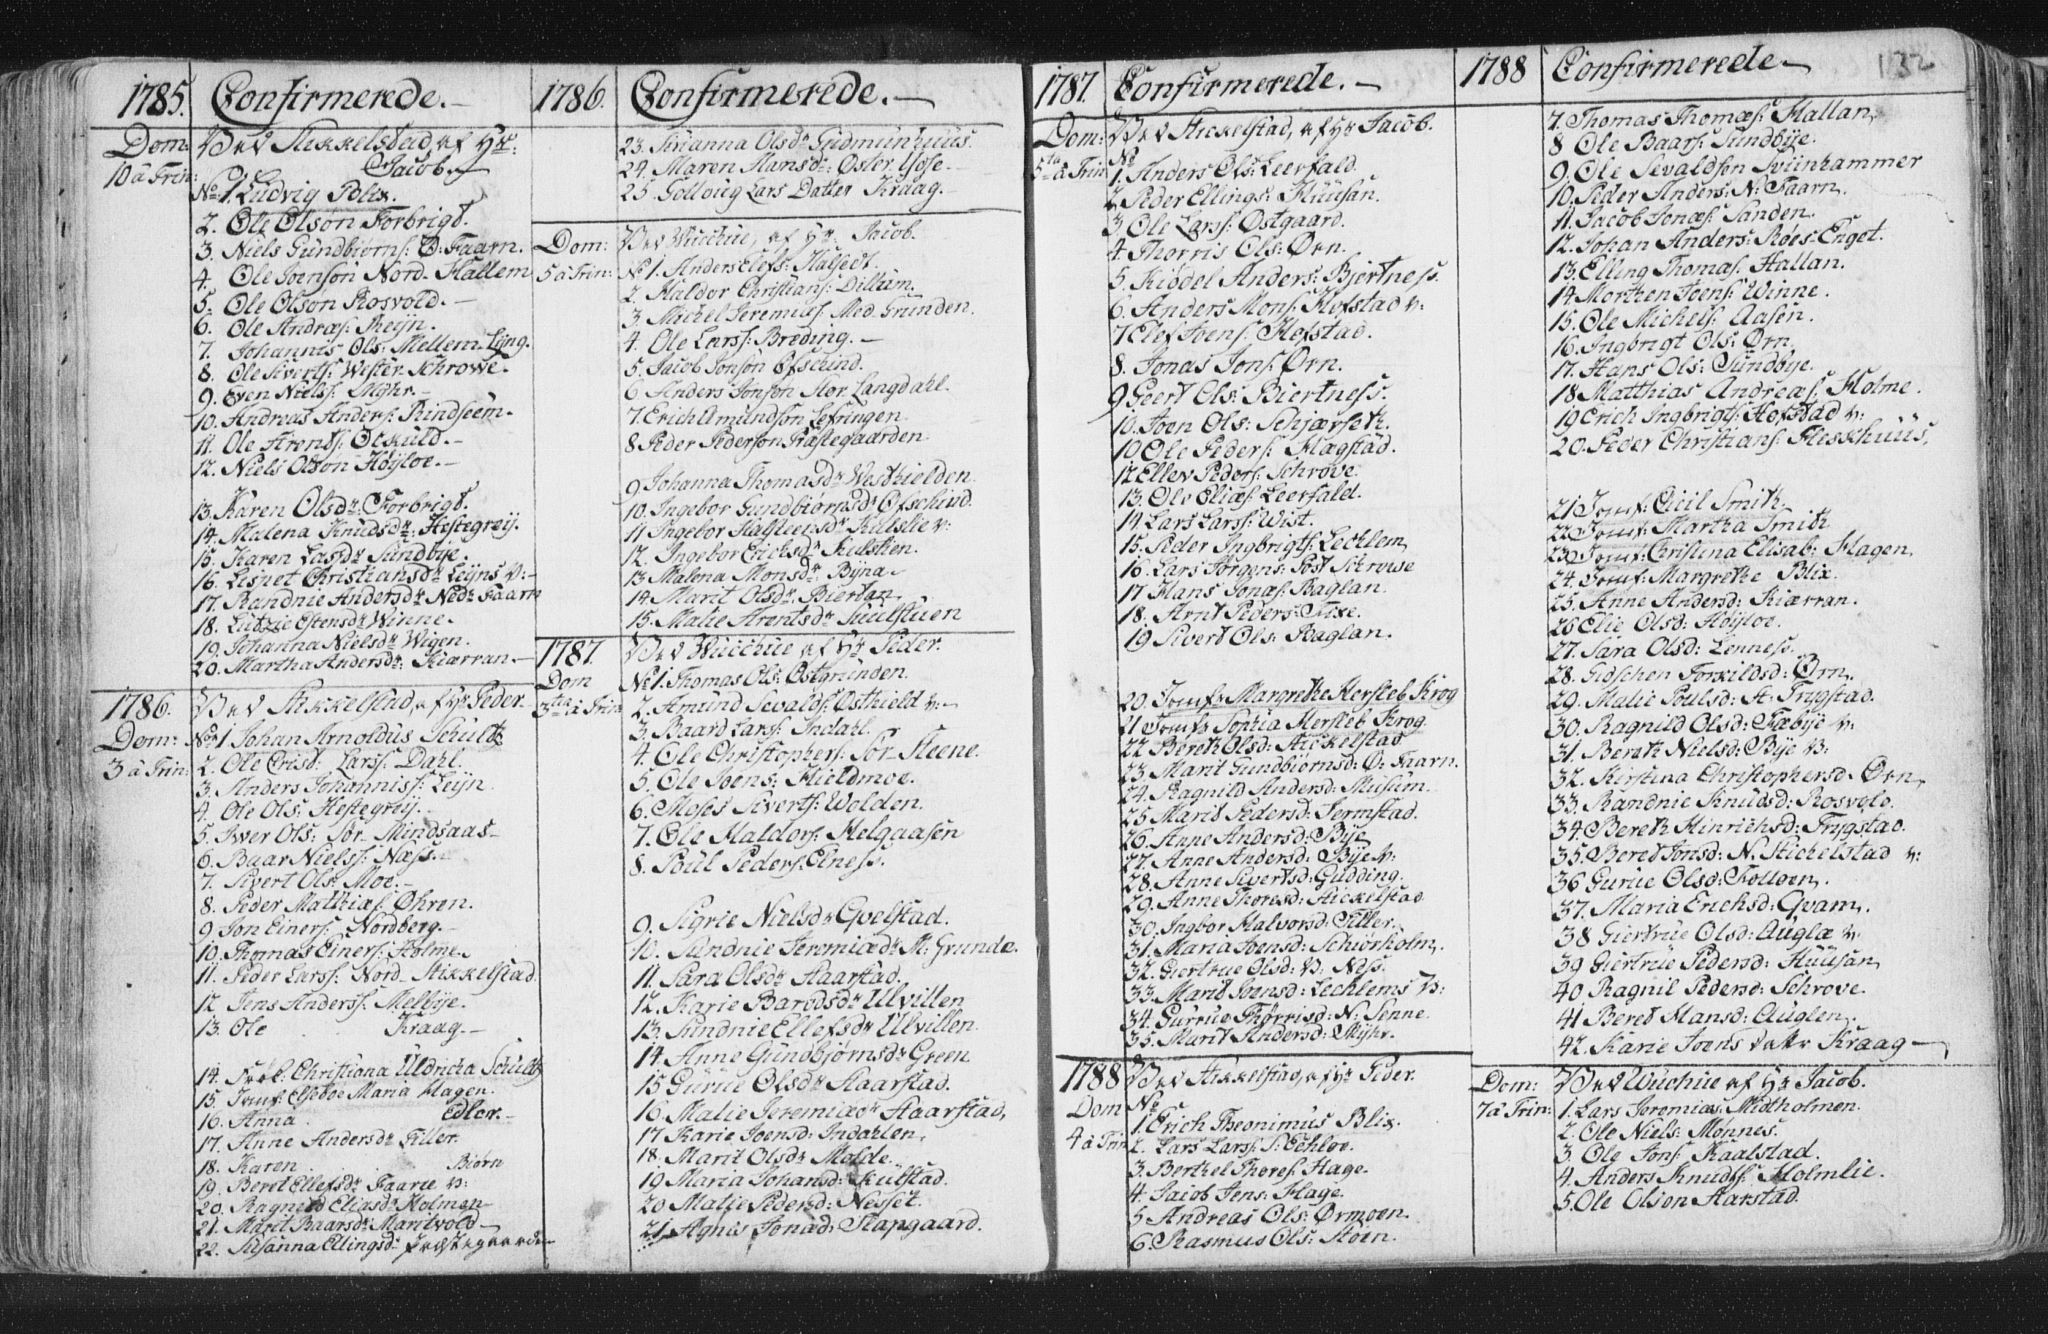 1785. Confirmerede.
Dom: 10 à Trin:
Ved Stikkelstad, af Hr: Jacob.
No 1. Ludvig Polix.
2. Ole Olsøn Forbrigd.
3. Niels Gundbiørns: Ø: Faarn.
4. Ole Joensøn Nord. Hallem
5. Ole Olsøn Rosvold.
6. Ole Andræs: Reijn.
7. Johannis Ols: Mellem Ling.
8. Ole Siverts: Wester Schrowe.
9. Even Niels: Myhr.
10. Andreas Anders: Rindseem.
11. Ole Arents: Ockuld.
12. Niels Olsøn Höÿloe.
13. Karen Olsdr: Forbrigd.
14. Malena Knudsdr: Hestegreÿ.
15. Karen Lasdr Sundbÿe.
16. Lisbet Christiansdr Leÿns v:
17. Randnie Andersdr Nedr Faarn
18. Lutzie Ostensdr Winne.
19. Johanna Nielsdr Wigen.
20. Martha Andersdr: Kiærran.
1786.
Dom: 3 à Trin:
Ved Stikkelstad, af Hr Peder
No 1 Johan Arnoldus Schultz
2. Ole Crisd: Larss: Dahl.
3. Anders Johanniss: Leÿn.
4. Ole Ols: Hestegreÿ.
5. Iwer Ols: Sør Mindsaas
6. Baar Nielss: Næss.
7. Sivert Ols: Moe.
8. Peder Matthiæs: Øhren.
9 Jon Einers: Nordberg.
10. Thomas Einers: Holme
11. Peder Larss: Nord Stikkelstad.
12 Jens Anderss: Melbÿe.
13. Ole Kraag.
14. Frök: Christiana Uldricha Schultz
15 Jomf: Elseboe Maria Hagen.
16. Anna Edler.
17. Anne Andersdr Tiller
18. Karen Biørn
19. Beret Ellefsdr Faarie v:
20. Ragnild Eliasdr Holmen
21. Marit Baarsdr Maritvold
22. Susanna Ellingsd: Præstegaarde
1786. Confirmerede.
23. Susanna Olsdr Gudmunhuus.
24. Maren Hansdr: Oster Hofe.
25. Golloug Lars Datter Kraag.
Dom: 5 à Trin:
Ved Wuckue, af Hr: Jacob.
No 1. Anders Elefs: Halsect.
2. Haldor Christians: Dillum.
3. Michel Jeremiss: Med. Grunden.
4. Ole Larss: Breding.
5. Jacob Jonsøn Ofschind.
6 Anders Jonsøn Stor Langdahl.
7. Erich Amundsøn Lefringen
8 Peder Pedersøn Præstegaarden
9 Johanna Thomasdr Westhielden
10. Ingebor Gundbiørnsdr Ofschind.
11 Ingebor Halsteensdr Kulslie v:
12. Ingebor Ericksdr Kulstien.
13. Malena Monsdr: Bÿna
14 Marit Olsdr Biertan,
15. Malie Arentsdr Suulstuen
1787.
Dom 3tia à Trin
Ved Wuckue af Hr Peder.
No 1. Thomas Ols: Ostgrunden.
2. Amund Sevalds: Østhield v:
3 Baard Larss: Indahl.
4. Ole Christophers: Sør Steene.
5. Ole Joens: Hieldmoe.
6. Moses Siverts: Wolden.
7. Ole Haldors: Helgaasen
8. Poul Peders: Elness.
9. Sigrie Nielsdr Qvelstad.
10. Randnie Jeremiædr M: Grunde.
11. Sara Olsdr Kaarstad.
12. Karie Bardsdr Ulvillen
13. Sundnie Ellefsdr Ulvillen.
14 Anne Gundbjørnsdr Green
15 Gurue Olsdr Kaarstad.
16. Malie Jeremiædr Kaarstad,
17 Karie Joensd: Indahlen.
18. Marit Olsdr Molde.
19 Maria Johansd: Kulstad.
20 Malie Pedersd: Nesset.
21 Agnis Jonæd: Stapgaard.
1787. Confirmerede.
Dom: 5ta à Trin
Ved Stickelstad, af Hr Jacob.
No
1. Anders Ols: Leerfald.
2 Peder Ellings: Huusan.
3 Ole Larss: Ostgaard.
4. Thorris Ols: Ørn.
5. Kiödel Anders: Bjertness.
6. Anders Mons: Hofstad v:
7 Elef Joens: Hofstad.
8. Jonas Jons: Ørn.
9 Geert Ols: Biertness.
10. Joen Ols: Schjærseth.
10 Ole Peders: Hagstad.
12 Ellev Peders: Schrove.
13. Ole Elias: Leerfald.
14. Lars Larss: Wist.
15. Peder Ingbrigts: Lechlem,
16. Lars Jörgens: Post Schrowe
17 Hans Jonæs: Baglan.
18. Arnt Peders: Tuxe.
19 Sivert Ols: Raglan.
20. Jomf: Margrethe Hersleb Krog
21 Jomf: Sophia Hersleb Krog
22 Bereth Olsd: Stickelstad
23. Marit Gundbiørnsd: Ø: Faarn.
24. Ragnild Andersd: Musum.
25 Marit Pedersd: Jermstad.
26. Anne Andersd: Bÿe
27. Anne Andersd: Bÿe v:
28. Anne Sivertsd: Gudding.
29. Anne Thoresd: Stickelstad
30. Ingbor Halvorsd: Tiller.
31. Maria Joensd: Schiörholm,
32. Giertrue Olsd: v: Ness.
33. Marit Joensd: Lechlems v:
34. Gurrue Thörrisd: N: Senne.
35. Marit Andersd: Myhr.
1788
Dom 4 à Trin
Ved Stikkelstad, af Hr Peder.
No
1 Erich Theonimus Blix.
2. Lars Larss: S: Echloe.
3 Berthel Thores: Hage.
4. Jacob Jens: Hage.
5 Andreas Ols: Ørmoen.
6. Rasmus Ols: Stoen.
1788 Confirmerede
132
7. Thomas Thomæs: Hallan,
8 Ole Baars: Sundbÿe.
9. Ole Sevaldsøn Sviinhammer
10. Peder Anders: N: Faarn.
11 Jacob Jonæs: Sanden.
12. Johan Anders: Røes Enget.
13. Elling Thomas: Hallan.
14 Morthen Joens: Winne.
15. Ole Michels: Aasen.
16. Ingbrigt Ols: Ørn
17. Hans Ols: Sundbÿe.
18 Matthias Andreæs: Holme.
19 Erich Ingbrigts: Hofstad v:
20. Peder Christians: Fleskhuus,
21 Jomf: Cicil Smith
22 Jomf: Martha Smith
23 Jomf: Christina Elisab: Hagen,
24. Jomf: Margrethe Blix.
25. Anne Andersd: Kiærran.
26 Elie Olsd: Höÿloe.
27. Sara Olsd: Lenness.
28. Gidschen Forkildsd: Ørn.
29. Malie Poulsd: A: Trygstad.
30. Ragnild Olsd: Fæbÿe v:
31. Bereth Nielsd: Bÿe v:
32. Kirstina Christophersd: Ørn,
33. Randnie Knudsd: Rosvold.
34. Bereth Hinrichsd: Trygstad.
35. Beret Jonsd: N. Stichelstad v:
36 Gurue Olsd: Folloen,
37. Maria Erichsd: Qvam,
38 Giertrue Olsd: Auglæ v:
39 Giertrue Pedersd: Huusan,
40 Ragnil Pedersd: Schrove.
41 Beret Mansd: Auglen,
42. Karie Joens datr Kraag
Dom: 7 à Trin:
Ved Wuckue af Hr Jacob.
1. Lars Jeremias: Midtholmen.
2. Ole Niels: Mønnes.
3 Ole Jons: Kaalstad.
4. Anders Knuds: Holmlie.
5 Ole Olsøn Aarstad.